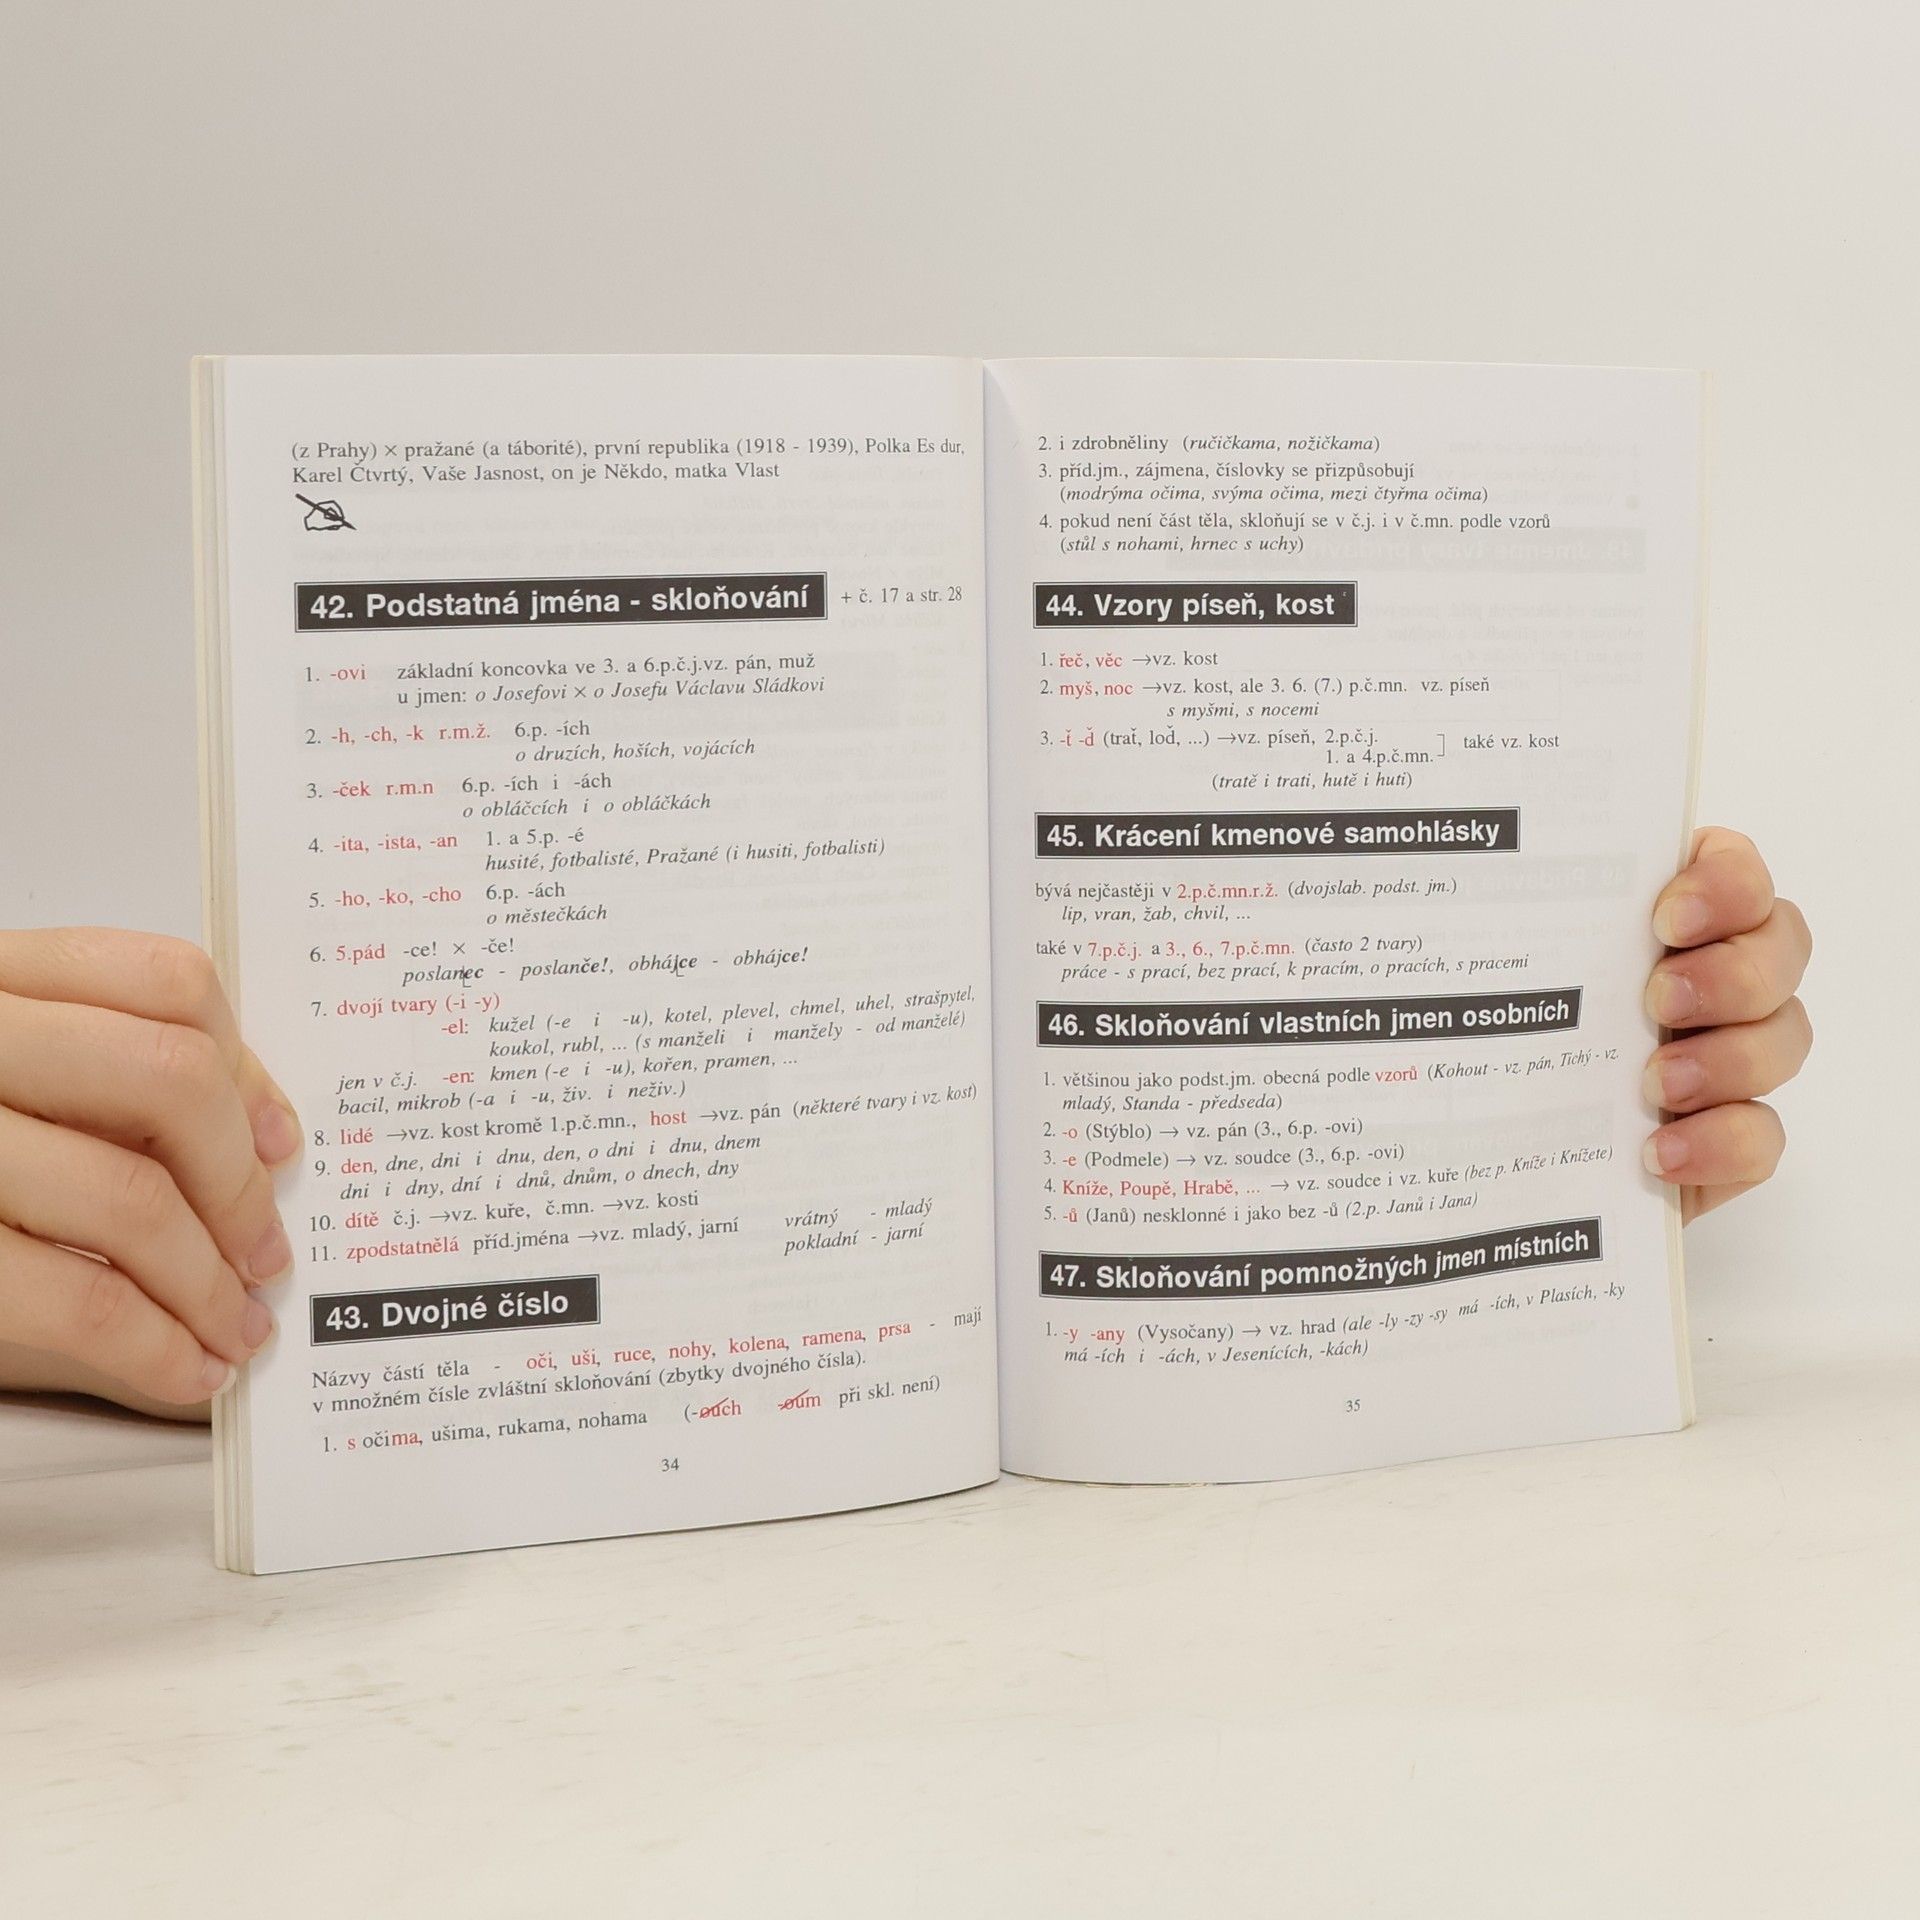 (z Prahy) × pražané (a táborité), první republika (1918 - 1939), Polka Es dur,
Karel Čtvrtý, Vaše Jasnost, on je Někdo, matka Vlast
42. Podstatná jména - skloňování + č. 17 a str. 28
1. -ovi základní koncovka ve 3. a 6.p.č.j.vz. pán, muž
u jmen: o Josefovi × o Josefu Václavu Sládkovi
2. -h, -ch, -k r.m.ž. 6.p. -ích
o druzích, hoších, vojácích
3. -ček r.m.n 6.p. -ích i -ách
o obláčcích i o obláčkách
4. -ita, -ista, -an 1. a 5.p. -é
husité, fotbalisté, Pražané (i husiti, fotbalisti)
5. -ho, -ko, -cho 6.p. -ách
o městečkách
6. 5.pád -ce! × -če!
poslanec - poslanče!, obhájce - obhájce!
7. dvojí tvary (-i -y)
-el: kužel (-e i -u), kotel, plevel, chmel, uhel, strašpytel,
koukol, rubl, ... (s manželi i manžely - od manželé)
jen v č.j. -en: kmen (-e i -u), kořen, pramen, ...
bacil, mikrob (-a i -u, živ. i neživ.)
8. lidé →vz. kost kromě 1.p.č.mn., host →vz. pán (některé tvary i vz. kost)
9. den, dne, dni i dnu, den, o dni i dnu, dnem
dni i dny, dní i dnů, dnům, o dnech, dny
10. dítě č.j. →vz. kuře, č.mn. →vz. kosti
11. zpodstatnělá příd.jména →vz. mladý, jarní vrátný - mladý
pokladní - jarní
43. Dvojné číslo
Názvy částí těla - oči, uši, ruce, nohy, kolena, ramena, prsa - mají
v množném čísle zvláštní skloňování (zbytky dvojného čísla).
1. s očima, ušima, rukama, nohama (-ouch -oum při skl. není)
34
2. i zdrobněliny (ručičkama, nožičkama)
3. příd.jm., zájmena, číslovky se přizpůsobují
(modrýma očima, svýma očima, mezi čtyřma očima)
4. pokud není část těla, skloňují se v č.j. i v č.mn. podle vzorů
(stůl s nohami, hrnec s uchy)
44. Vzory píseň, kost
1. řeč, věc →vz. kost
2. myš, noc →vz. kost, ale 3. 6. (7.) p.č.mn. vz. píseň
s myšmi, s nocemi
3. -ť -ď (trať, loď, ...) →vz. píseň, 2.p.č.j.
1. a 4.p.č.mn. také vz. kost
(tratě i trati, hutě i huti)
45. Krácení kmenové samohlásky
bývá nejčastěji v 2.p.č.mn.r.ž. (dvojslab. podst. jm.)
lip, vran, žab, chvil, ...
také v 7.p.č.j. a 3., 6., 7.p.č.mn. (často 2 tvary)
práce - s prací, bez prací, k pracím, o pracích, s pracemi
46. Skloňování vlastních jmen osobních
1. většinou jako podst.jm. obecná podle vzorů (Kohout - vz. pán, Tichý - vz.
mladý, Standa - předseda)
2. -o (Stýblo) → vz. pán (3., 6.p. -ovi)
3. -e (Podmele) → vz. soudce (3., 6.p. -ovi)
4. Kníže, Poupě, Hrabě, ... → vz. soudce i vz. kuře (bez p. Kníže i Knížete)
5. -ů (Janů) nesklonné i jako bez -ů (2.p. Janů i Jana)
47. Skloňování pomnožných jmen místních
1. -y -any (Vysočany) → vz. hrad (ale -ly -zy -sy má -ích, v Plasích, -ky
má -ích i -ách, v Jesenících, -kách)
35